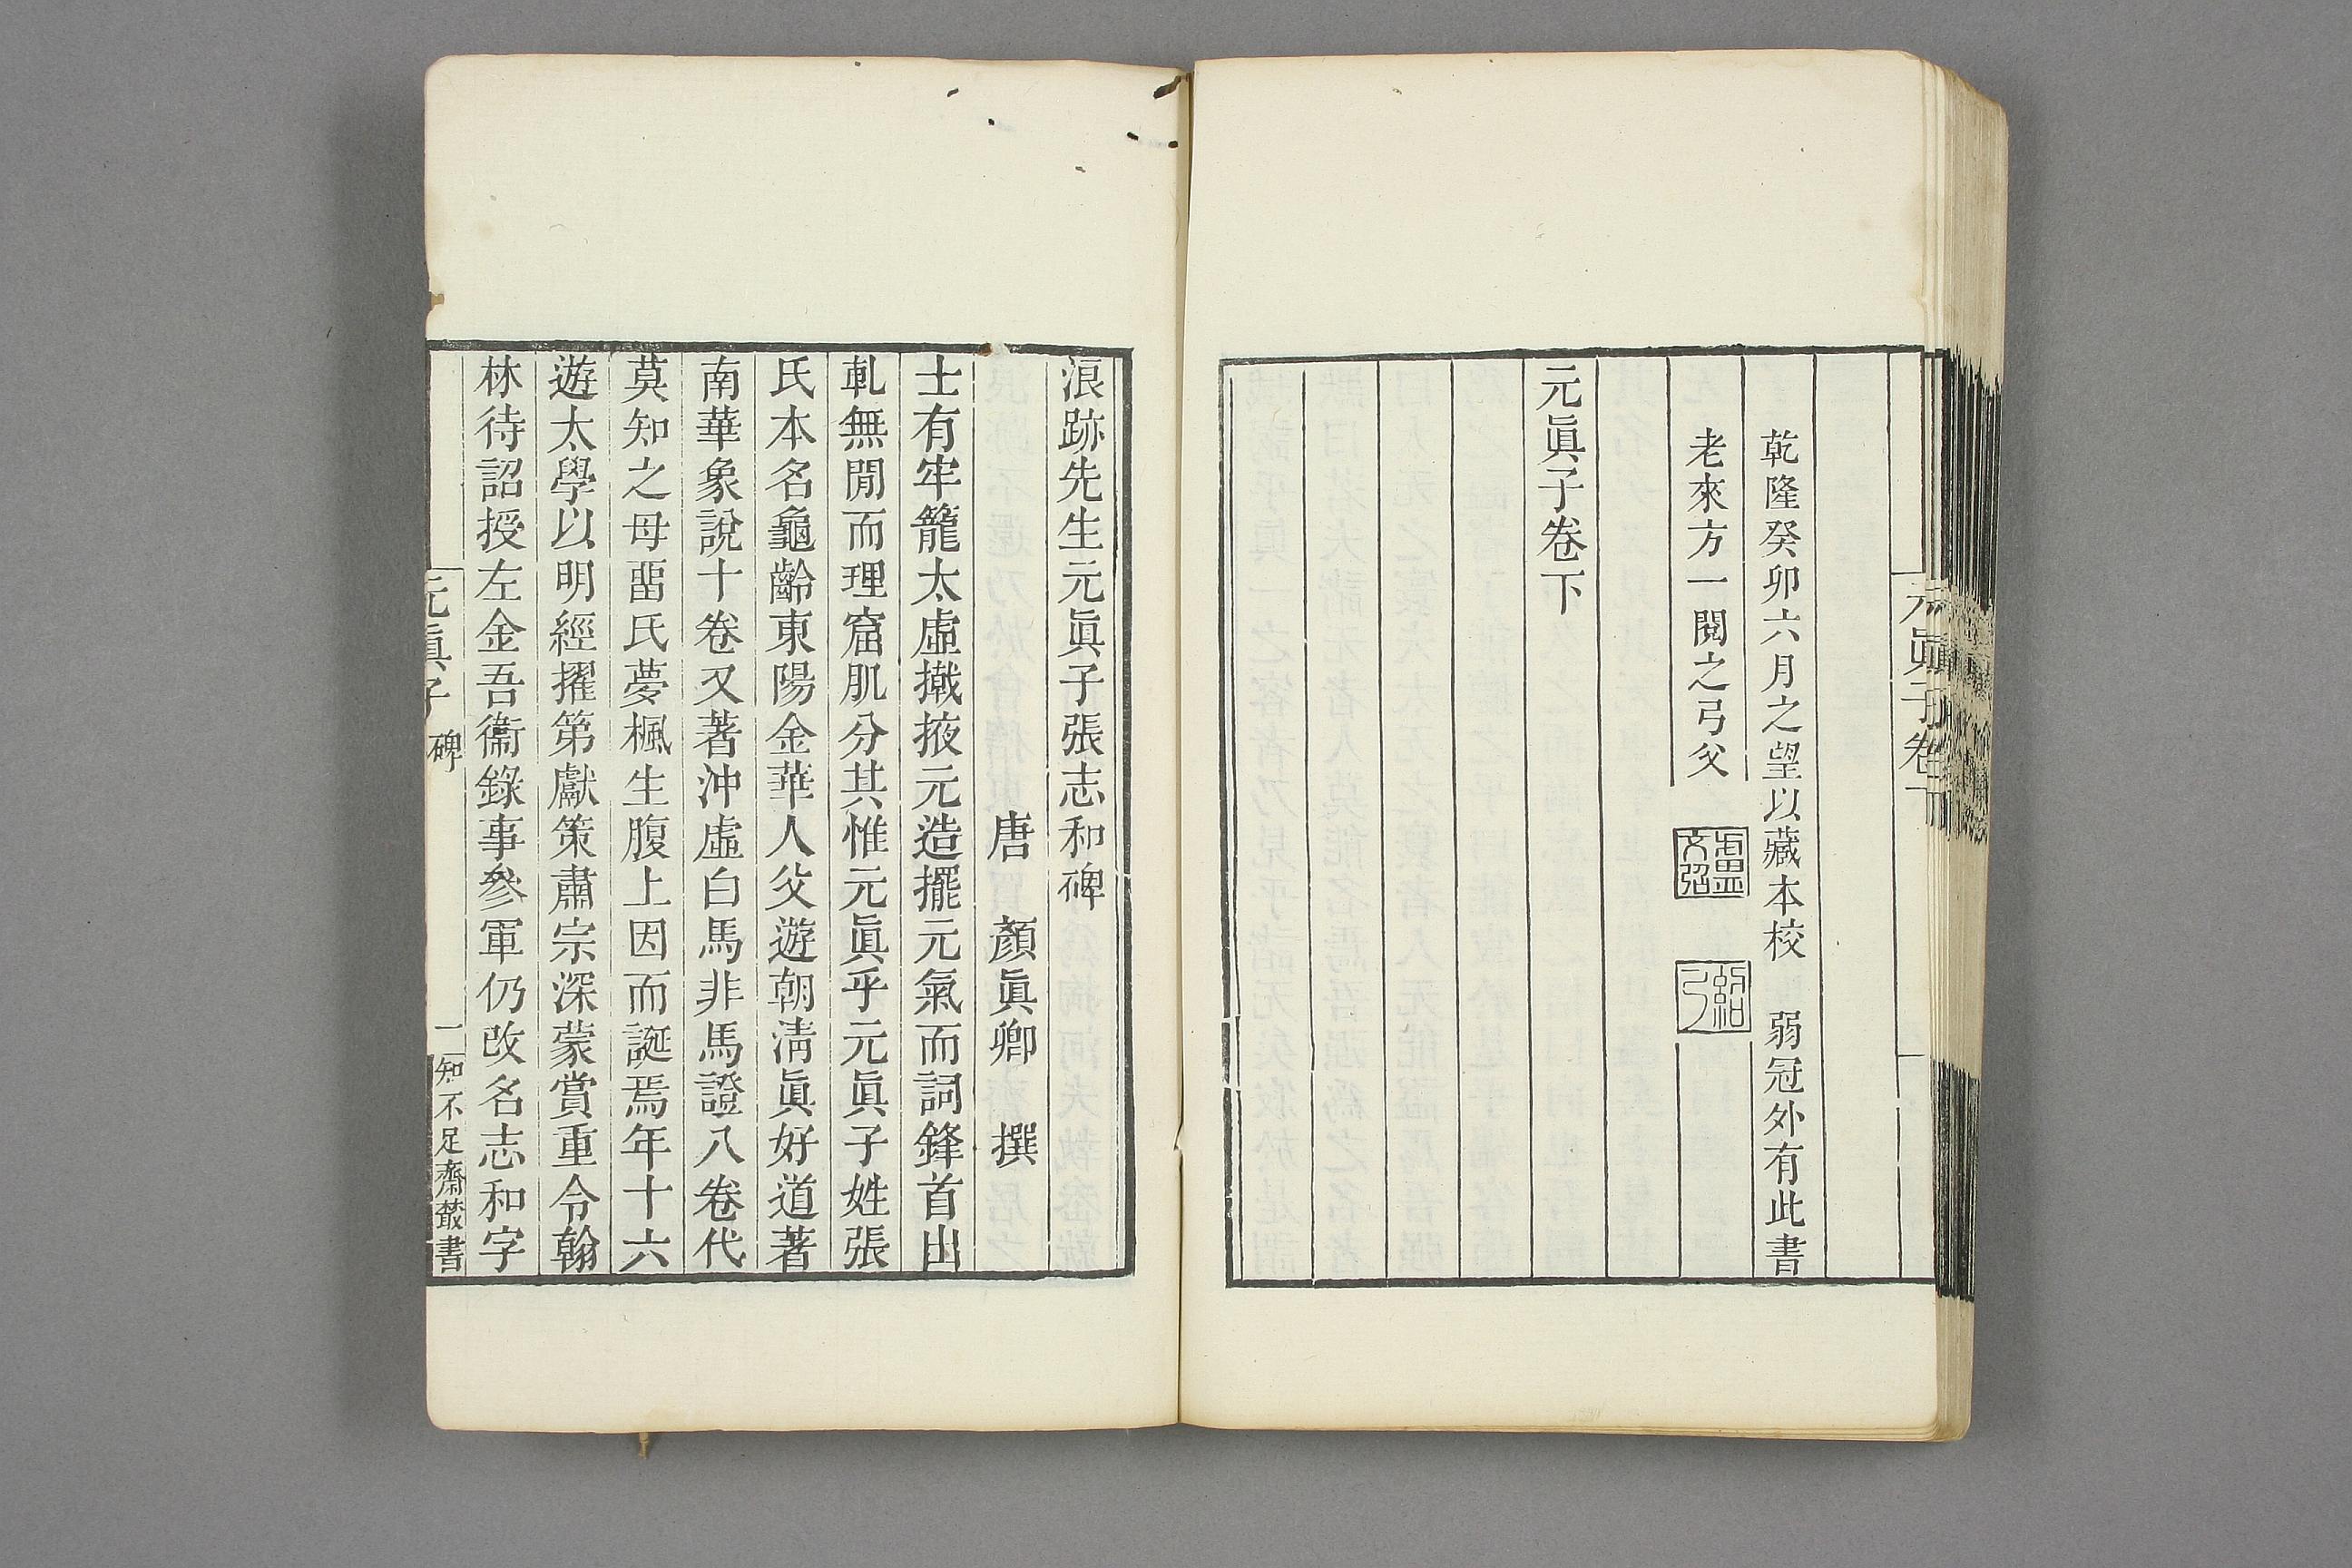 元眞子卷下
乾隆癸卯六月之望以藏本校　弱冠外有此書
老來方一閱之弓父
盧文弨
紹弓
元眞子卷下
浪跡先生元眞子張志和碑
唐　顏眞卿　撰
士有牢籠太虛擑掖元造擺元氣而詞鋒首出
軋無閒而理窟肌分其惟元眞乎元眞子姓張
氏本名龜齡東陽金華人父遊朝淸眞好道著
南華象說十卷又著沖虛白馬非馬證八卷代
莫知之母畱氏夢楓生腹上因而誕焉年十六
遊太學以明經擢第獻策肅宗深蒙賞重令翰
林待詔授左金吾衞錄事參軍仍改名志和字
元眞子　碑　一　知不足齋叢書